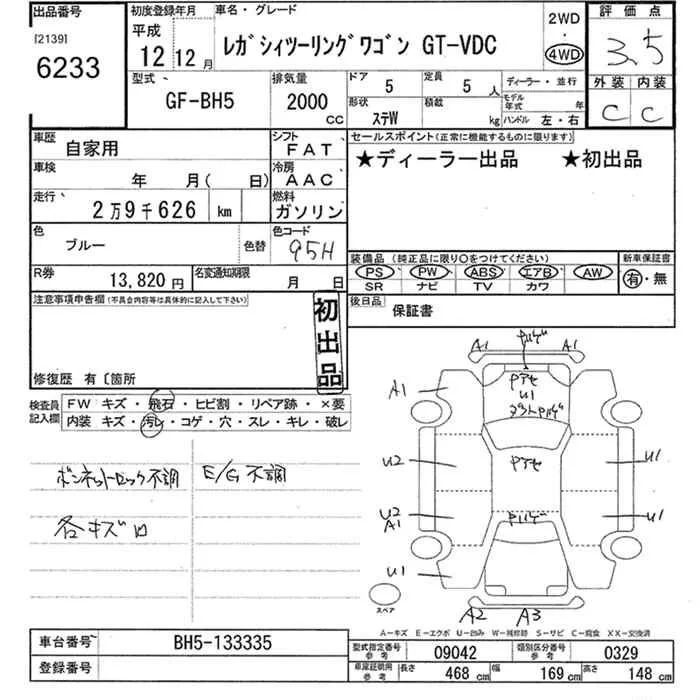 出品番号
[2139]
6233
初度登録年月
平成
12 12月
車名・グレード
レガシィツーリングワゴン GT-VDC
2WD
・
4WD
評価点
3.5
外装 内装
C C
型式
GF-BH5
排気量
2000 CC
ドア 5
定員 5 人
形状 ステW
積載 kg
ディーラー・並行
モデル年式 年
ハンドル 左・右
車歴 自家用
シフト FAT
車検 年 月( 日)
冷房 AAC
走行 2万9千626 km
燃料 ガソリン
色 ブルー 色替
色コード 95H
R券 13,820円
名変通知期限 月 日
セールスポイント(正常に機能するものに限ります)
★ディーラー出品 ★初出品
装備品(純正品に限り○をつけてください)
PS・PW・ABS・エアB・AW
SR ナビ TV カワ
新車保証書
有・無
後日品 保証書
注意事項申告欄(不具合内容等は具体的に記入して下さい)
初出品
修復歴 有〔箇所
検査員記入欄
FW キズ・飛石・ヒビ割・リペア跡・×要
内装 キズ・汚レ・コゲ・穴・スレ・キレ・破レ
ボンネットロック不調
E/G不調
各キズ凹
A1 A1
A1
アセ
U1
U2
アセ
U1
U2
A1
U1
U1
A2 A3
スペア
A-キズ E-エクボ U-凹み W-補修跡 S-サビ C-腐食 XX-交換済
車台番号 BH5-133335
登録番号
型式指定番号 参考 09042
類別区分番号 参考 0329
車庫証明用 参考 長さ 468 cm 幅 169 cm 高さ 148 cm